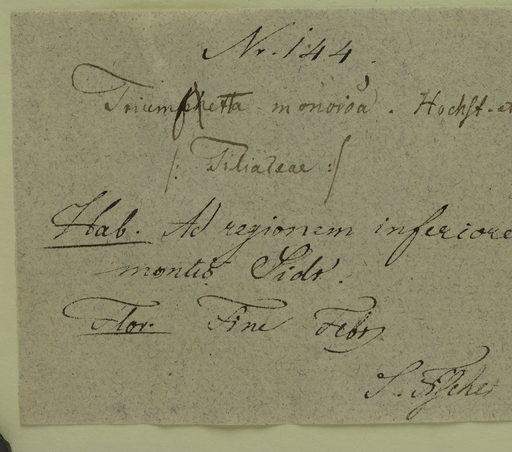 Nr. 144.
Triumfetta monoiöa. Hochst. et
/: Tiliaceae :/
Hab. Ad regionem inferiore
montis Sidr.
Flor. Fine Febr.
S. Fischer